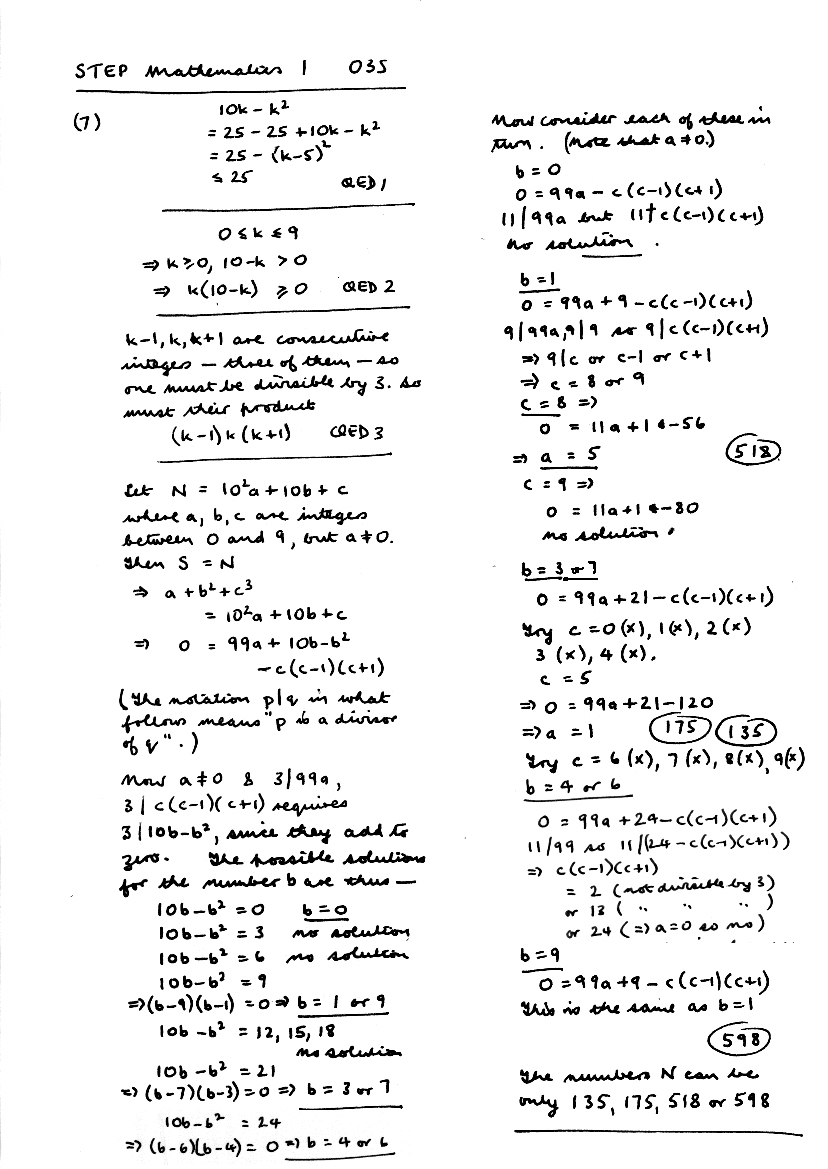 STEP Mathematics 1 035
(7)
10k - k²
= 25 - 25 + 10k - k²
= 25 - (k-5)²
≤ 25 QED 1
0 ≤ k ≤ 9
⇒ k ≥ 0, 10-k > 0
⇒ k(10-k) ≥ 0 QED 2
k-1, k, k+1 are consecutive
integers — three of them — so
one must be divisible by 3. So
must their product
(k-1)k(k+1) QED 3
Let N = 10²a + 10b + c
where a, b, c are integers
between 0 and 9, but a ≠ 0.
Then S = N
⇒ a + b² + c³
= 10²a + 10b + c
⇒ 0 = 99a + 10b - b²
- c(c-1)(c+1)
(The notation p|q in what
follows means "p is a divisor
of q".)
Now a ≠ 0 & 3|99a,
3 | c(c-1)(c+1) requires
3|10b-b², since they add to
zero. The possible solutions
for the number b are thus —
10b - b² = 0 b = 0
10b - b² = 3 no solution
10b - b² = 6 no solution
10b - b² = 9
⇒ (b-9)(b-1) = 0 ⇒ b = 1 or 9
10b - b² = 12, 15, 18
no solution
10b - b² = 21
⇒ (b-7)(b-3) = 0 ⇒ b = 3 or 7
10b - b² = 24
⇒ (b-6)(b-4) = 0 ⇒ b = 4 or 6
Now consider each of these in
turn. (Note that a ≠ 0.)
b = 0
0 = 99a - c(c-1)(c+1)
11|99a but 11†c(c-1)(c+1)
No solution.
b = 1
0 = 99a + 9 - c(c-1)(c+1)
9|99a, 9|9 so 9|c(c-1)(c+1)
⇒ 9|c or c-1 or c+1
⇒ c = 8 or 9
c = 8 ⇒
0 = 11a + 1 - 56
⇒ a = 5 518
c = 9 ⇒
0 = 11a + 1 - 80
no solution.
b = 3 or 7
0 = 99a + 21 - c(c-1)(c+1)
Try c = 0 (x), 1(x), 2 (x)
3 (x), 4 (x).
c = 5
⇒ 0 = 99a + 21 - 120
⇒ a = 1 175 135
Try c = 6 (x), 7 (x), 8(x), 9(x)
b = 4 or 6
0 = 99a + 24 - c(c-1)(c+1)
11/99 so 11/(24 - c(c-1)(c+1))
⇒ c(c-1)(c+1)
= 2 (not divisible by 3)
or 13 ( " " " )
or 24 (⇒ a = 0 so no)
b = 9
0 = 99a + 9 - c(c-1)(c+1)
This is the same as b = 1
598
The numbers N can be
only 135, 175, 518 or 598